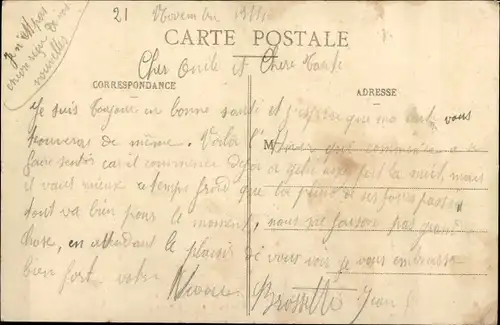 21 Novembre 1914
Je n'ai pas
encore reçu de vos
nouvelles
CARTE POSTALE
Cher Oncle et Chere Tante
CORRESPONDANCE
ADRESSE
Je suis toujours en bonne santé et j'espère que ma carte vous
trouveras de même. Voilà l'hiver qui commence a ce
M
faire sentir car il commence deja a gelée assez fort la nuit mais
il vaut mieux ce temps froid que la pluie et ses jours passe
tout va bien pour le moment, nous ne faison pas grand
chose, en attendant le plaisir de vous voir je vous embrasse
bien fort votre
Neveu
Jean